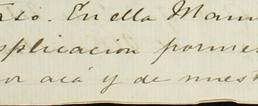 En ella Manu
splicacion porme
or acá y de nuest